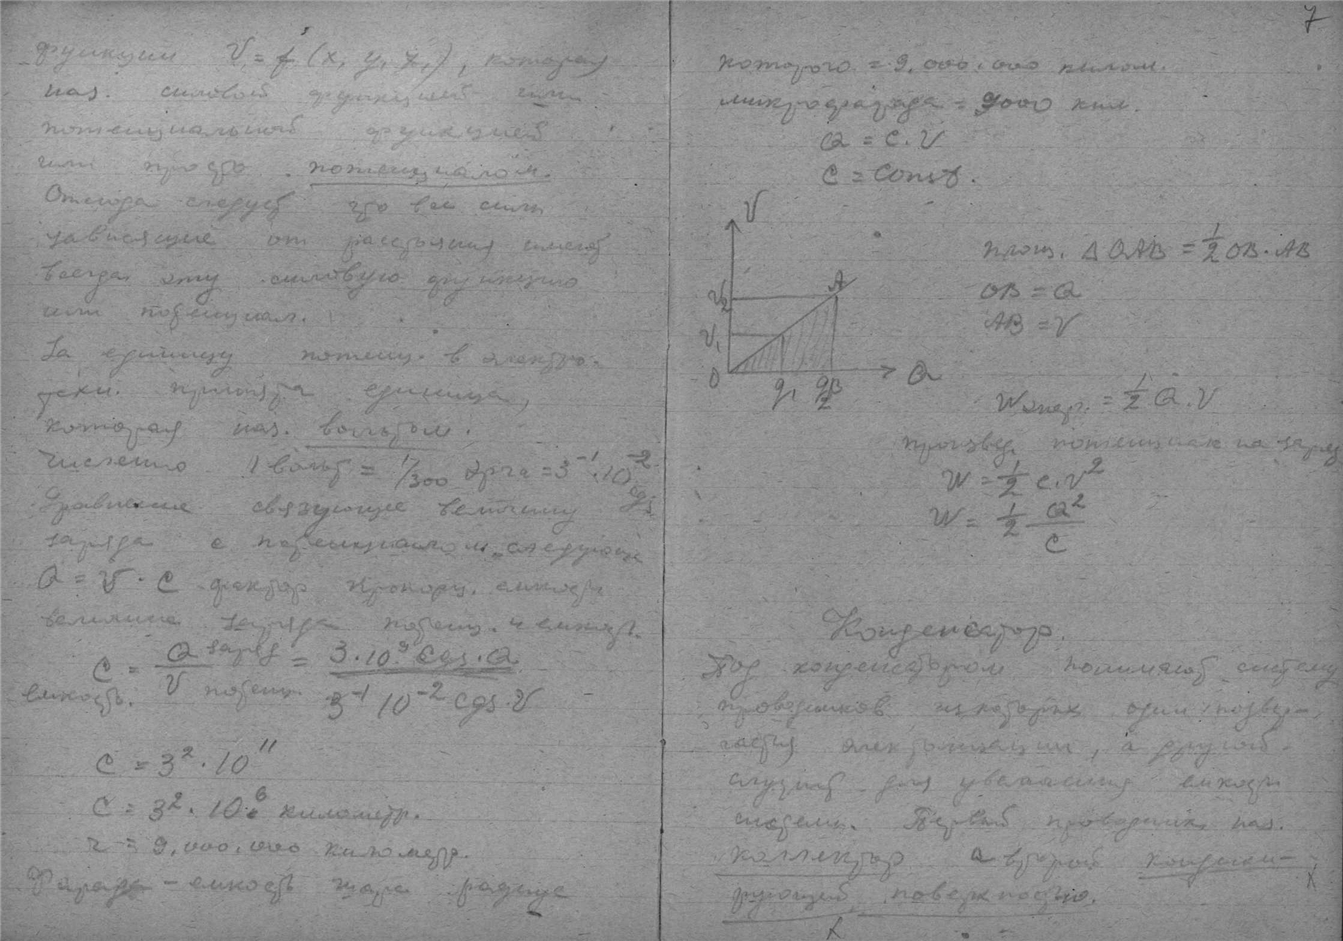 функции V = f (x, y, z,), которая
наз. силовой функцией или
потенциальной функцией
или просто потенциалом.
Отсюда следует что все силы
зависящие от расстояния имеют
всегда эту силовую функцию
или потенциал.
За единицу потенц. в электро-
техн. принята единица,
которая наз. вольтом.
Численно 1 вольт = 1/300 эрга = 3⁻¹·10⁻² cgs
Уравнение связующее величину
заряда с потенциалом следующее
Q = V · C фактор пропорц. емкости
величина заряда потенц. и емкост.
C = Q заряд / V потенц. = 3·10⁹ cgs·Q / 3⁻¹ 10⁻² cgs·V
емкость.
C = 3² · 10¹¹
C = 3² · 10⁶ километр.
r = 9.000.000 километр.
Фарада - емкость шара радиус
7
которого = 9.000.000 килом.
микрофарада = 9000 кил.
Q = C · V
C = Const.
V
площ. Δ OAB = 1/2 OB · AB
A
V₂
OB = Q
AB = V
V₁
O
Q
q₁ q₂ B
W энер. = 1/2 Q · V
произвед. потенциал на заряд
W = 1/2 C · V²
W = 1/2 Q²/C
Конденсатор.
Под конденсатором понимают систему
проводников из которых один подвер-
гается электризации, а другой
служит для увеличения емкости
системы. Первый проводник наз.
коллектор а второй конденси-
рующей поверхностью.